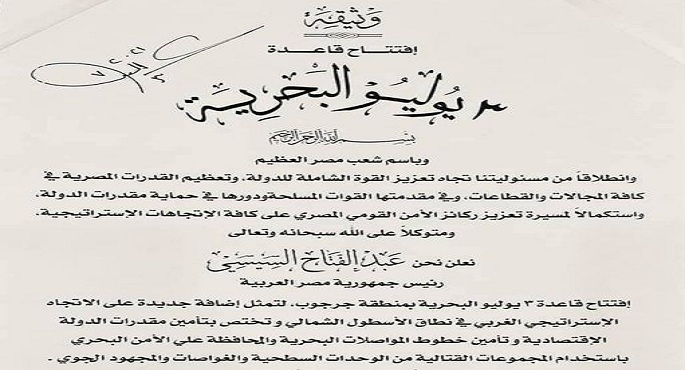 وثيقة
إفتتاح قاعدة
٣ يوليو البحرية
بسم الله الرحمن الرحيم
وباسم شعب مصر العظيم
وانطلاقاً من مسئوليتنا تجاه تعزيز القوة الشاملة للدولة، وتعظيم القدرات المصرية في
كافة المجالات والقطاعات، وفي مقدمتها القوات المسلحة ودورها في حماية مقدرات الدولة،
واستكمالاً لمسيرة تعزيز ركائز الأمن القومي المصري على كافة الإتجاهات الإستراتيجية،
ومتوكلاً على الله سبحانه وتعالى
نعلن نحن عبد الفتاح السيسي
رئيس جمهورية مصر العربية
إفتتاح قاعدة ٣ يوليو البحرية بمنطقة جرجوب، لتمثل إضافة جديدة على الاتجاه
الإستراتيجي الغربي في نطاق الأسطول الشمالي و تختص بتأمين مقدرات الدولة
الإقتصادية و تأمين خطوط المواصلات البحرية والمحافظة علي الأمن البحري
باستخدام المجموعات القتالية من الوحدات السطحية والغواصات والمجهود الجوي .